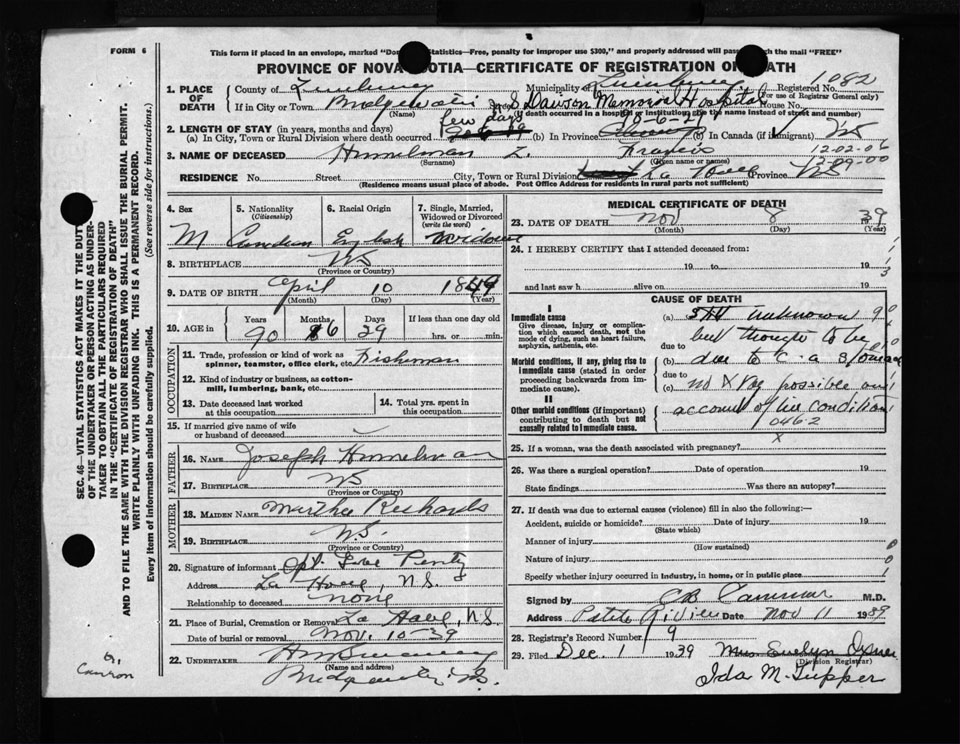 FORM 6
This form if placed in an envelope, marked "Do Statistics—Free, penalty for improper use $300," and properly addressed will pass the mail "FREE"
PROVINCE OF NOVA SCOTIA—CERTIFICATE OF REGISTRATION OF DEATH
1082
1. PLACE OF DEATH County of Lunenburg Municipality of Lunenburg Registered No.
(For use of Registrar General only)
If in City or Town Bridgewater Dawson Memorial Hospital House No.
(Name) (If death occurred in a hospital or institution, give the name instead of street and number)
few days
2. LENGTH OF STAY (in years, months and days)
(a) In City, Town or Rural Division where death occurred (b) In Province (c) In Canada (if immigrant)
12-02-06
3. NAME OF DECEASED Himmelman Francis
(Surname) (Given name or names)
12-09-00
RESIDENCE No. Street City, Town or Rural Division La Have Province NS
(Residence means usual place of abode. Post Office Address for residents in rural parts not sufficient)
4. Sex 5. Nationality (Citizenship) 6. Racial Origin 7. Single, Married, Widowed or Divorced (write the word)
M Canadian English Widower
8. BIRTHPLACE NS
(Province or Country)
9. DATE OF BIRTH April 10 1849
(Month) (Day) (Year)
10. AGE in Years Months Days If less than one day old
90 6 29 hrs. or min.
OCCUPATION
11. Trade, profession or kind of work as spinner, teamster, office clerk, etc. Fisherman
12. Kind of industry or business, as cotton-mill, lumbering, bank, etc.
13. Date deceased last worked at this occupation
14. Total yrs. spent in this occupation
15. If married give name of wife or husband of deceased
FATHER
16. NAME Joseph Himmelman
17. BIRTHPLACE NS
(Province or Country)
MOTHER
18. MAIDEN NAME Martha Richards
19. BIRTHPLACE N.S.
(Province or Country)
20. Signature of informant
Address La Have, N.S.
Relationship to deceased none
21. Place of Burial, Cremation or Removal La Have, N.S.
Date of burial or removal Nov. 10-39
22. UNDERTAKER
(Name and address)
Bridgewater N.S.
MEDICAL CERTIFICATE OF DEATH
23. DATE OF DEATH Nov 8 39
(Month) (Day) (Year)
24. I HEREBY CERTIFY that I attended deceased from:
19 to 19
and last saw h alive on 19
CAUSE OF DEATH
I
Immediate cause
Give disease, injury or complication which caused death, not the mode of dying, such as heart failure, asphyxia, asthenia, etc.
Morbid conditions, if any, giving rise to immediate cause (stated in order proceeding backwards from immediate cause).
II
Other morbid conditions (if important) contributing to death but not causally related to immediate cause.
(a) unknown
due to but thought to be
(b) due to c.a. stomach
due to
(c) no X Ray possible on
account of his condition
0462
25. If a woman, was the death associated with pregnancy?
26. Was there a surgical operation? Date of operation 19
State findings Was there an autopsy?
27. If death was due to external causes (violence) fill in also the following:—
Accident, suicide or homicide? Date of injury 19
(State which)
Manner of injury
(How sustained)
Nature of injury
Specify whether injury occurred in industry, in home, or in public place
Signed by M.D.
Address Petite Riviere Nov 11 1939
28. Registrar's Record Number 9
29. Filed Dec. 1 1939 Mrs. Evelyn
(Division Registrar)
Ida M. Tupper
SEC. 46—VITAL STATISTICS ACT MAKES IT THE DUTY
OF THE UNDERTAKER OR PERSON ACTING AS UNDER-
TAKER TO OBTAIN ALL THE PARTICULARS REQUIRED
IN THE "CERTIFICATE OF REGISTRATION OF DEATH"
AND TO FILE THE SAME WITH THE DIVISION REGISTRAR WHO SHALL ISSUE THE BURIAL PERMIT.
WRITE PLAINLY WITH UNFADING INK. THIS IS A PERMANENT RECORD.
Every item of information should be carefully supplied. (See reverse side for instructions.)
Cameron